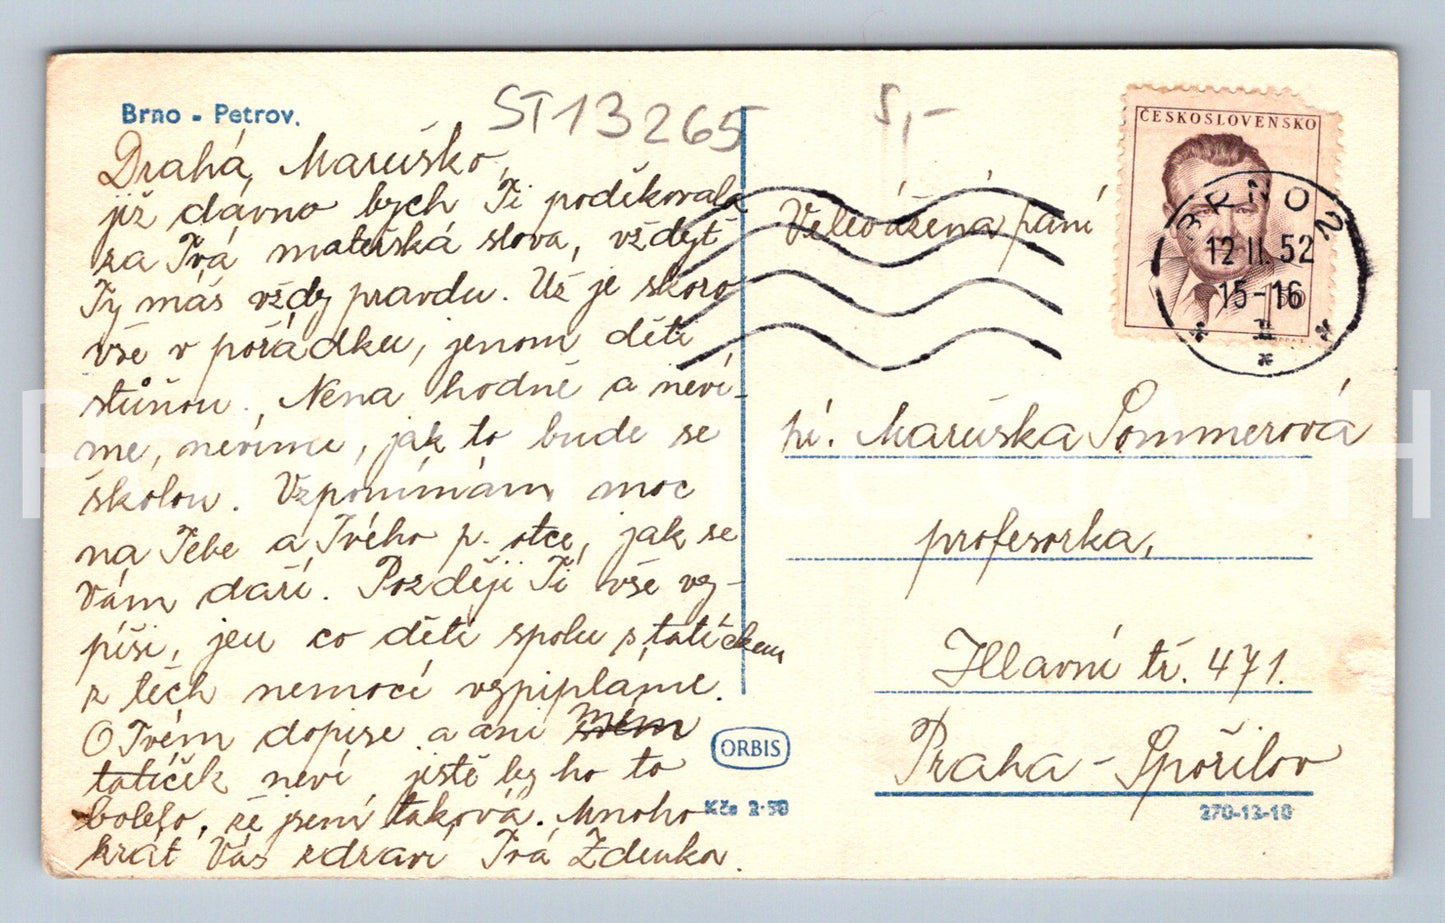 Brno - Petrov.
ST13265
5,-
Drahá Maruško,
již dávno bych Ti poděkovala
za Tvá mateřská slova, vždyť
Ty máš vždy pravdu. Už je skoro
vše v pořádku, jenom děti
stůňou. Nena hodně a neví-
me, nevíme, jak to bude se
školou. Vzpomínám moc
na Tebe a Tvého p. otce, jak se
Vám daří. Později Ti vše vy-
píši, jen co děti spolu s tatíčkem
z těch nemocí vypipláme.
O Tvém dopise a ani mém
tatíček neví, jistě by ho to
bolelo, že jsem taková. Mnoho
krát Vás zdraví Tvá Zdenka.
ČESKOSLOVENSKO
BRNO 2
12.II.52
15-16
Velevážená paní
pí. Maruška Sommerová
profesorka,
Hlavní tř. 471.
Praha - Spořilov
ORBIS
Kčs 2·50
270-13-10